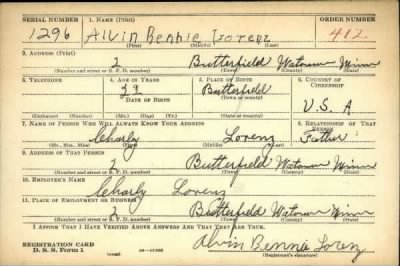 SERIAL NUMBER 1. NAME (Print) ORDER NUMBER
1296 Alvin Bennie Lorenz 412
(First) (Middle) (Last)
2. ADDRESS (Print)
2 Butterfield Watonwan Minn
(Number and street or R. F. D. number) (Town) (County) (State)
3. TELEPHONE 4. AGE IN YEARS 5. PLACE OF BIRTH 6. COUNTRY OF CITIZENSHIP
Butterfield
DATE OF BIRTH (Town or county)
U. S. A
(Exchange) (Number) (Mo.) (Day) (Yr.) (State or country)
7. NAME OF PERSON WHO WILL ALWAYS KNOW YOUR ADDRESS 8. RELATIONSHIP OF THAT PERSON
Charly Lorenz Father
(Mr., Mrs., Miss) (First) (Middle) (Last)
9. ADDRESS OF THAT PERSON
2 Butterfield Watonwan Minn
(Number and street or R. F. D. number) (Town) (County) (State)
10. EMPLOYER'S NAME
Charly Lorenz
11. PLACE OF EMPLOYMENT OR BUSINESS
2 Butterfield Watonwan Minn
(Number and street or R. F. D. number) (Town) (County) (State)
I AFFIRM THAT I HAVE VERIFIED ABOVE ANSWERS AND THAT THEY ARE TRUE.
REGISTRATION CARD
D. S. S. Form 1
Alvin Bennie Lorenz
(Registrant's signature)